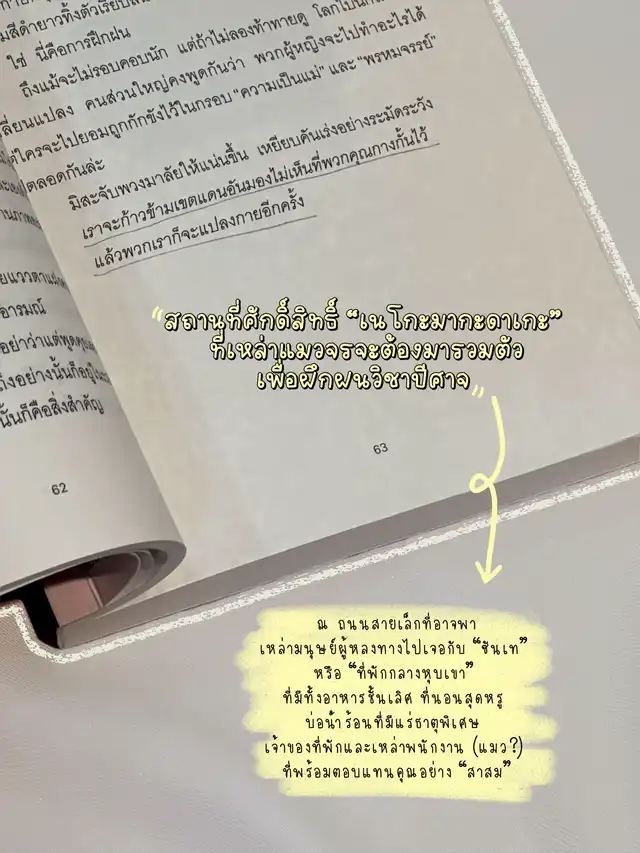 ใช่ นี่คือการฝึกฝน
ถึงแม้จะไม่รอบคอบนัก แต่ถ้าไม่ลองท้าทายดู
เปลี่ยนแปลง คนส่วนใหญ่คงพูดกันว่า พวกผู้หญิงจะไปทำอะไรได้
ใครจะไปยอมถูกกักขังไว้ในกรอบ “ความเป็นแม่” และ “พรหมจรรย์”
ตลอดกันล่ะ
มิสะจับพวงมาลัยให้แน่นขึ้น เหยียบคันเร่งอย่างระมัดระวัง
เราจะก้าวข้ามเขตแดนอันมองไม่เห็นที่พวกคุณกางกั้นไว้
แล้วพวกเราก็จะแปลงกายอีกครั้ง
63
อารมณ์
นั้นก็คือสิ่งสำคัญ
62
“สถานที่ศักดิ์สิทธิ์ “เนโกะมากะดาเกะ”
ที่เหล่าแมวจรจะต้องมารวมตัว
เพื่อฝึกฝนวิชาปีศาจ”
ณ ถนนสายเล็กที่อาจพา
เหล่ามนุษย์ผู้หลงทางไปเจอกับ “ซันเท”
หรือ “ที่พักกลางหุบเขา”
ที่มีทั้งอาหารชั้นเลิศ ที่นอนสุดหรู
บ่อน้ำร้อนที่มีแร่ธาตุพิเศษ
เจ้าของที่พักและเหล่าพนักงาน (แมว?)
ที่พร้อมตอบแทนคุณอย่าง “สาสม”